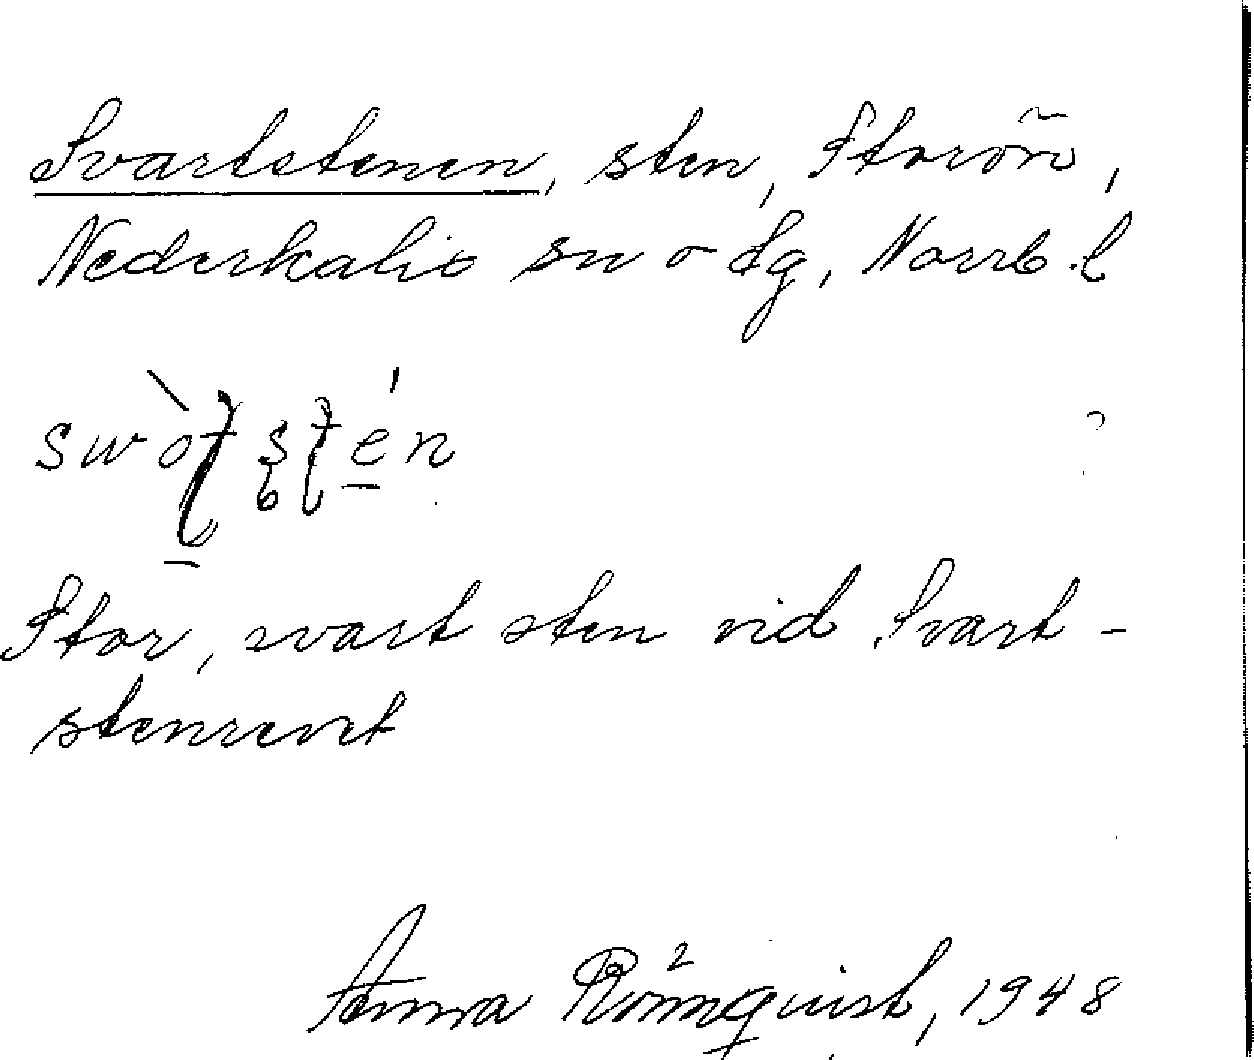 Svartstenen, sten, Storön,
Nederkalix sn o fg, Norrb. l
Stor, svart sten vid Svart-
stenrevet
Anna Römquist, 1948